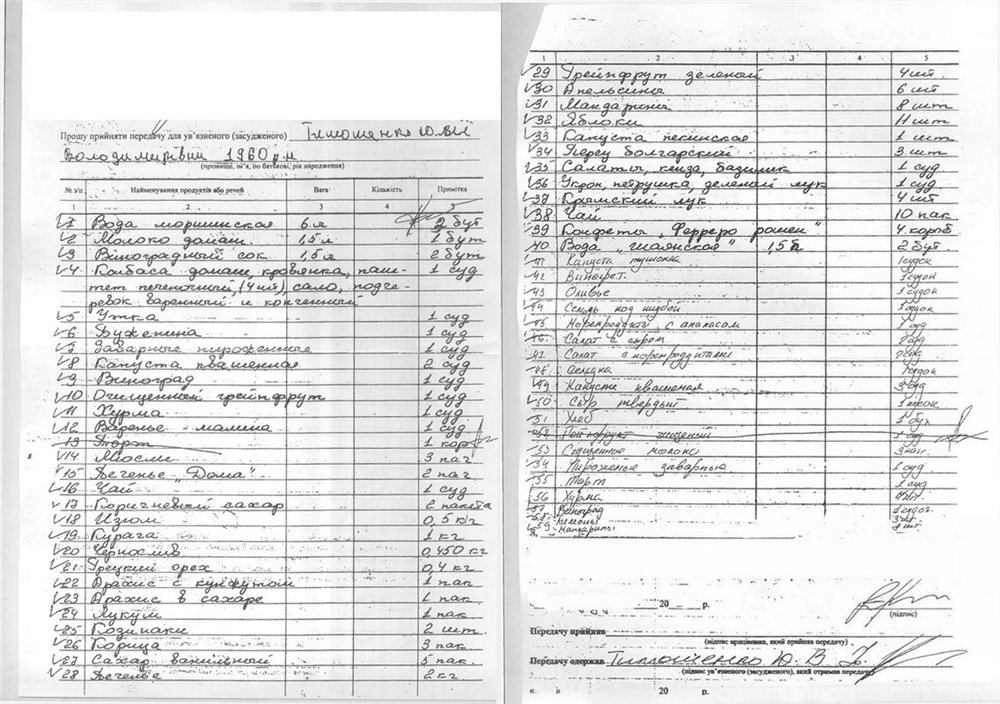 Прошу прийняти передачу для ув'язненого (засудженого) Тимошенко Юлії
Володимирівни 1960 р.н
(прізвище, ім'я, по батькові, рік народження)
№ з/п Найменування продуктів або речей Вага Кількість Примітка
1 2 3 4 5
1 Вода моршинская 6 л 2 бут
2 Молоко домаш. 1,5 л 1 бут
3 Виноградный сок 1,5 л 2 бут
4 Колбаса домаш, кровянка, паш- 1 суд
тет печеночный, (4 шт), сало, подче-
ревок варенный и копченный
5 Утка 1 суд
6 Буженина 1 суд
7 Заварные пироженные 1 суд
8 Капуста квашенная 2 суд
9 Виноград 1 суд
10 Очищенный грейпфрут 1 суд
11 Хурма 1 суд
12 Варенье - малина 1 суд
13 Торт 1 кор
14 Мюсли 3 пач
15 Печенье „Дома" 2 пач
16 Чай 1 суд
17 Коричневый сахар 2 пакета
18 Изюм 0,5 кг
19 Курага 1 кг
20 Чернослив 0,450 кг
21 Грецкий орех 0,4 кг
22 Арахис с кунжутом 1 пак
23 Арахис в сахаре 1 пак
24 Лукум 1 пак
25 Козинаки 2 шт
26 Корица 3 пак
27 Сахар ванильный 5 пак
28 Печенье 2 кг
1 2 3 4 5
29 Грейпфрут зеленый 4 шт.
30 Апельсины 6 шт
31 Мандарины 8 шт
32 Яблоки 11 шт
33 Капуста пекинская 1 шт
34 Перец болгарский 3 шт
35 Салаты, кинза, базилик 1 суд
36 Укроп, петрушка, зеленый лук 1 суд
37 Крымский лук 4 шт
38 Чай 10 пак
39 Конфеты „Ферреро рошен" 4 короб
40 Вода 1,5 2 бут
41 Капуста тушонка 1 судок
42 Винегрет. 1 судок
43 Оливье 1 судок
44 Сельдь под шубой 1 судок
45 Морепродукты с ананасом 1 суд
46. Салат с сыром
47 Салат с морепродуктами
48 Селедка
49 Капуста квашеная
50 Сыр твердый
51 Хлеб
52 Грейпфрукт чищеный 1 суд
53 Сгущенное молоко
54 Пироженые заварные 1 суд
55 Тарт 1 суд
56 Хурма
57 Виноград
58 Лимоны
59 Мандарины
20 р.
(підпис)
Передачу прийняв
(підпис працівника, який прийняв передачу)
Передачу одержав Тимошенко Ю. В.
(підпис ув'язненого (засудженого), який отримав передачу)
« » 20 р.